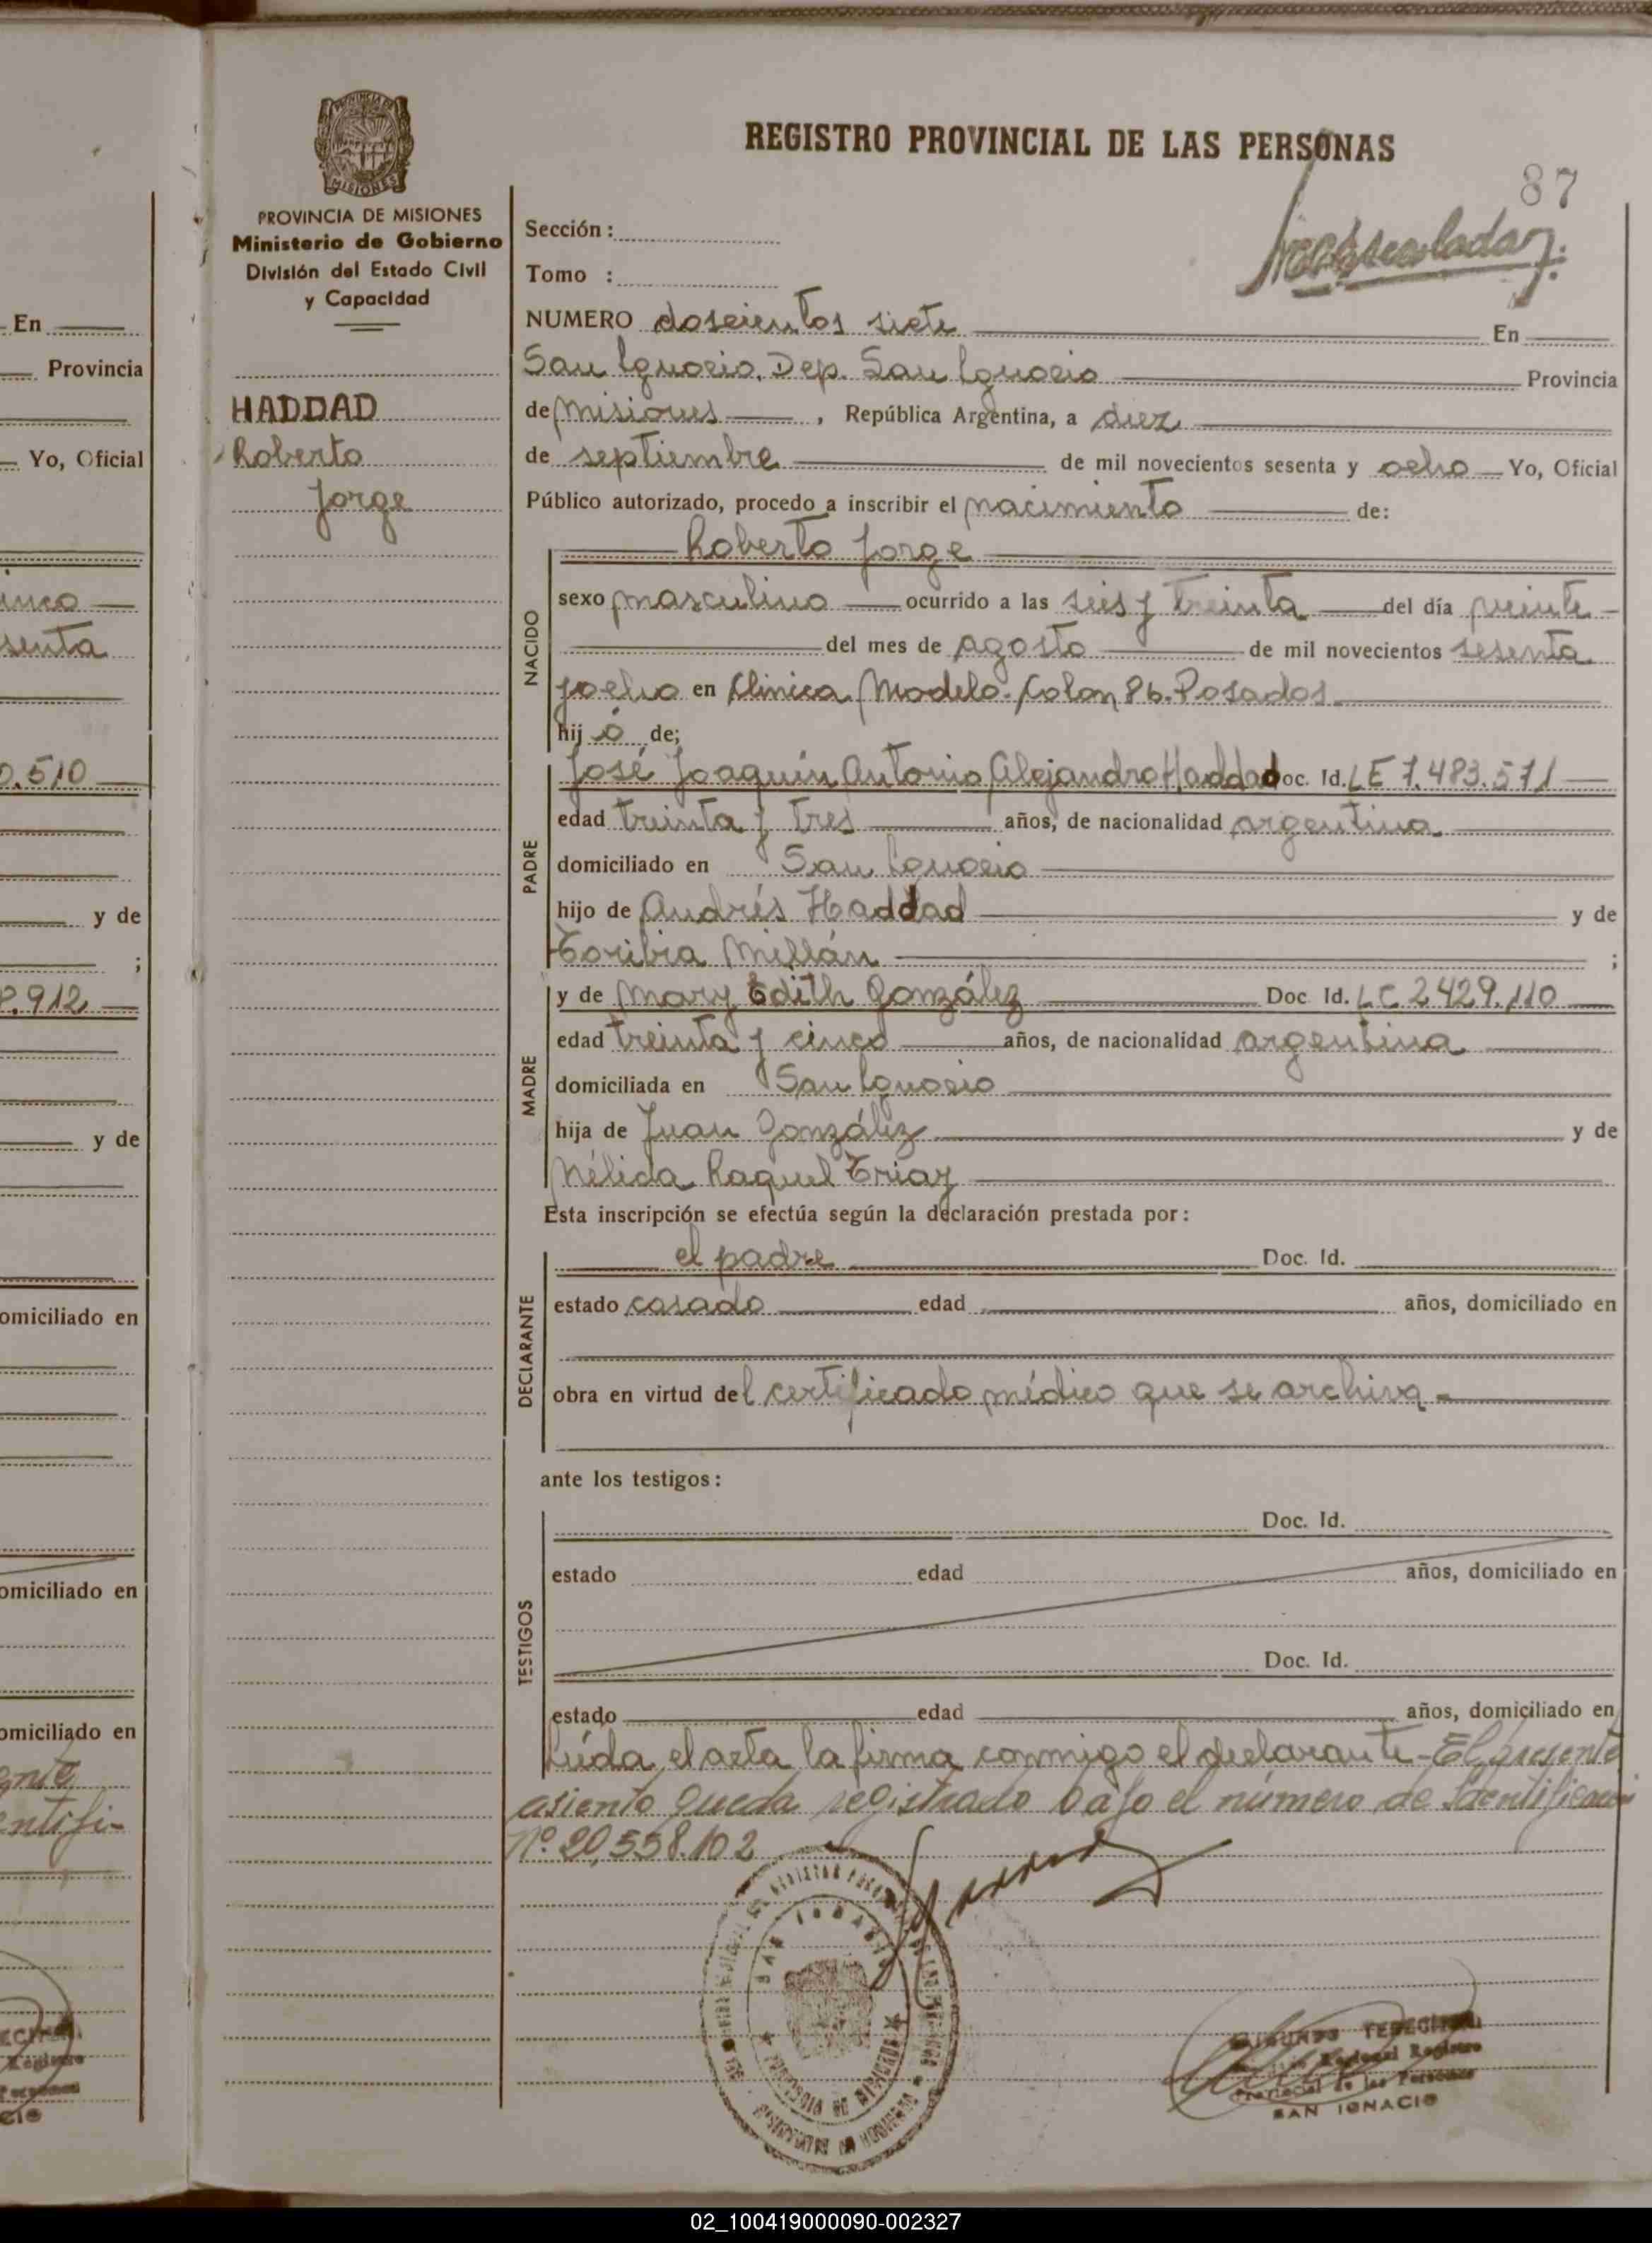 REGISTRO PROVINCIAL DE LAS PERSONAS
87
PROVINCIA DE MISIONES
Ministerio de Gobierno
División del Estado Civil
y Capacidad
HADDAD
Roberto
Jorge
Sección :
Tomo :
NUMERO doscientos siete En
San Ignacio. Dep. San Ignacio Provincia
de Misiones , República Argentina, a diez
de septiembre de mil novecientos sesenta y ocho Yo, Oficial
Público autorizado, procedo a inscribir el nacimiento de:
NACIDO
Roberto Jorge
sexo masculino ocurrido a las seis y treinta del día veinte
del mes de agosto de mil novecientos sesenta
y ocho en Clínica Modelo. Colon 86. Posadas
hij o de;
PADRE
José Joaquín Antonio Alejandro Haddad Doc. Id. LE 7.483.571
edad treinta y tres años, de nacionalidad argentina
domiciliado en San Ignacio
hijo de Andrés Haddad y de
Toribia Millán ;
MADRE
y de Mary Edith González Doc Id. LC 2429.110
edad treinta y cinco años, de nacionalidad argentina
domiciliada en San Ignacio
hija de Juan González y de
Nélida Raquel Triay
Esta inscripción se efectúa según la declaración prestada por:
DECLARANTE
el padre Doc. Id.
estado casado edad años, domiciliado en
obra en virtud del certificado médico que se archiva
ante los testigos:
TESTIGOS
Doc. Id.
estado edad años, domiciliado en
Doc. Id.
estado edad años, domiciliado en
Leída el acta la firma conmigo el declarante - El presente
asiento queda registrado bajo el número de Identificación
Nº 20,558.102
Provincial de las Personas
SAN IGNACIO
En
Provincia
Yo, Oficial
senta
0.510
y de
;
2.912
y de
omiciliado en
omiciliado en
omiciliado en
ente
entifi-
02_100419000090-002327